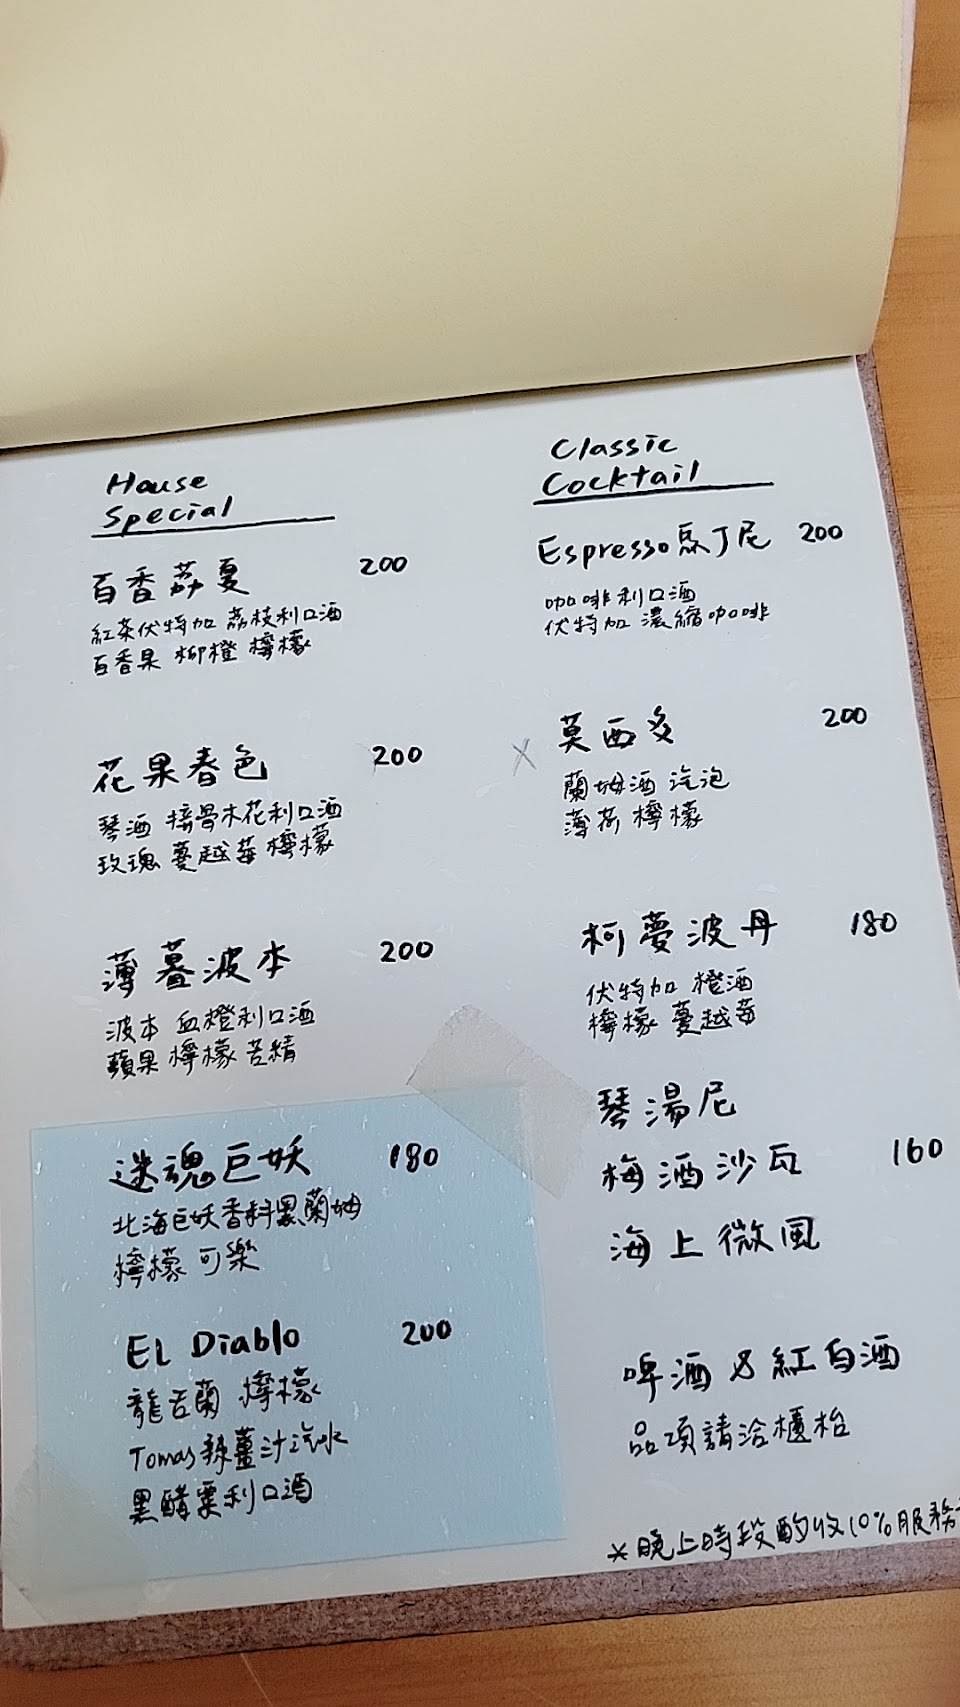 House
Special
百香荔夏 200
紅茶伏特加 荔枝利口酒
百香果 柳橙 檸檬
花果春色 200
琴酒 接骨木花利口酒
玫瑰 蔓越莓 檸檬
薄暮波本 200
波本 血橙利口酒
蘋果 檸檬 苦精
迷魂巨妖 180
北海巨妖香料黑蘭姆
檸檬 可樂
EL Diablo 200
龍舌蘭 檸檬
Tomas辣薑汁汽水
黑醋栗利口酒
Classic
Cocktail
Espresso馬丁尼 200
咖啡利口酒
伏特加 濃縮咖啡
x 莫西多 200
蘭姆酒 汽泡
薄荷 檸檬
柯夢波丹 180
伏特加 橙酒
檸檬 蔓越莓
琴湯尼
梅酒沙瓦 160
海上微風
啤酒 & 紅白酒
品項請洽櫃枱
*晚上時段酌收10%服務